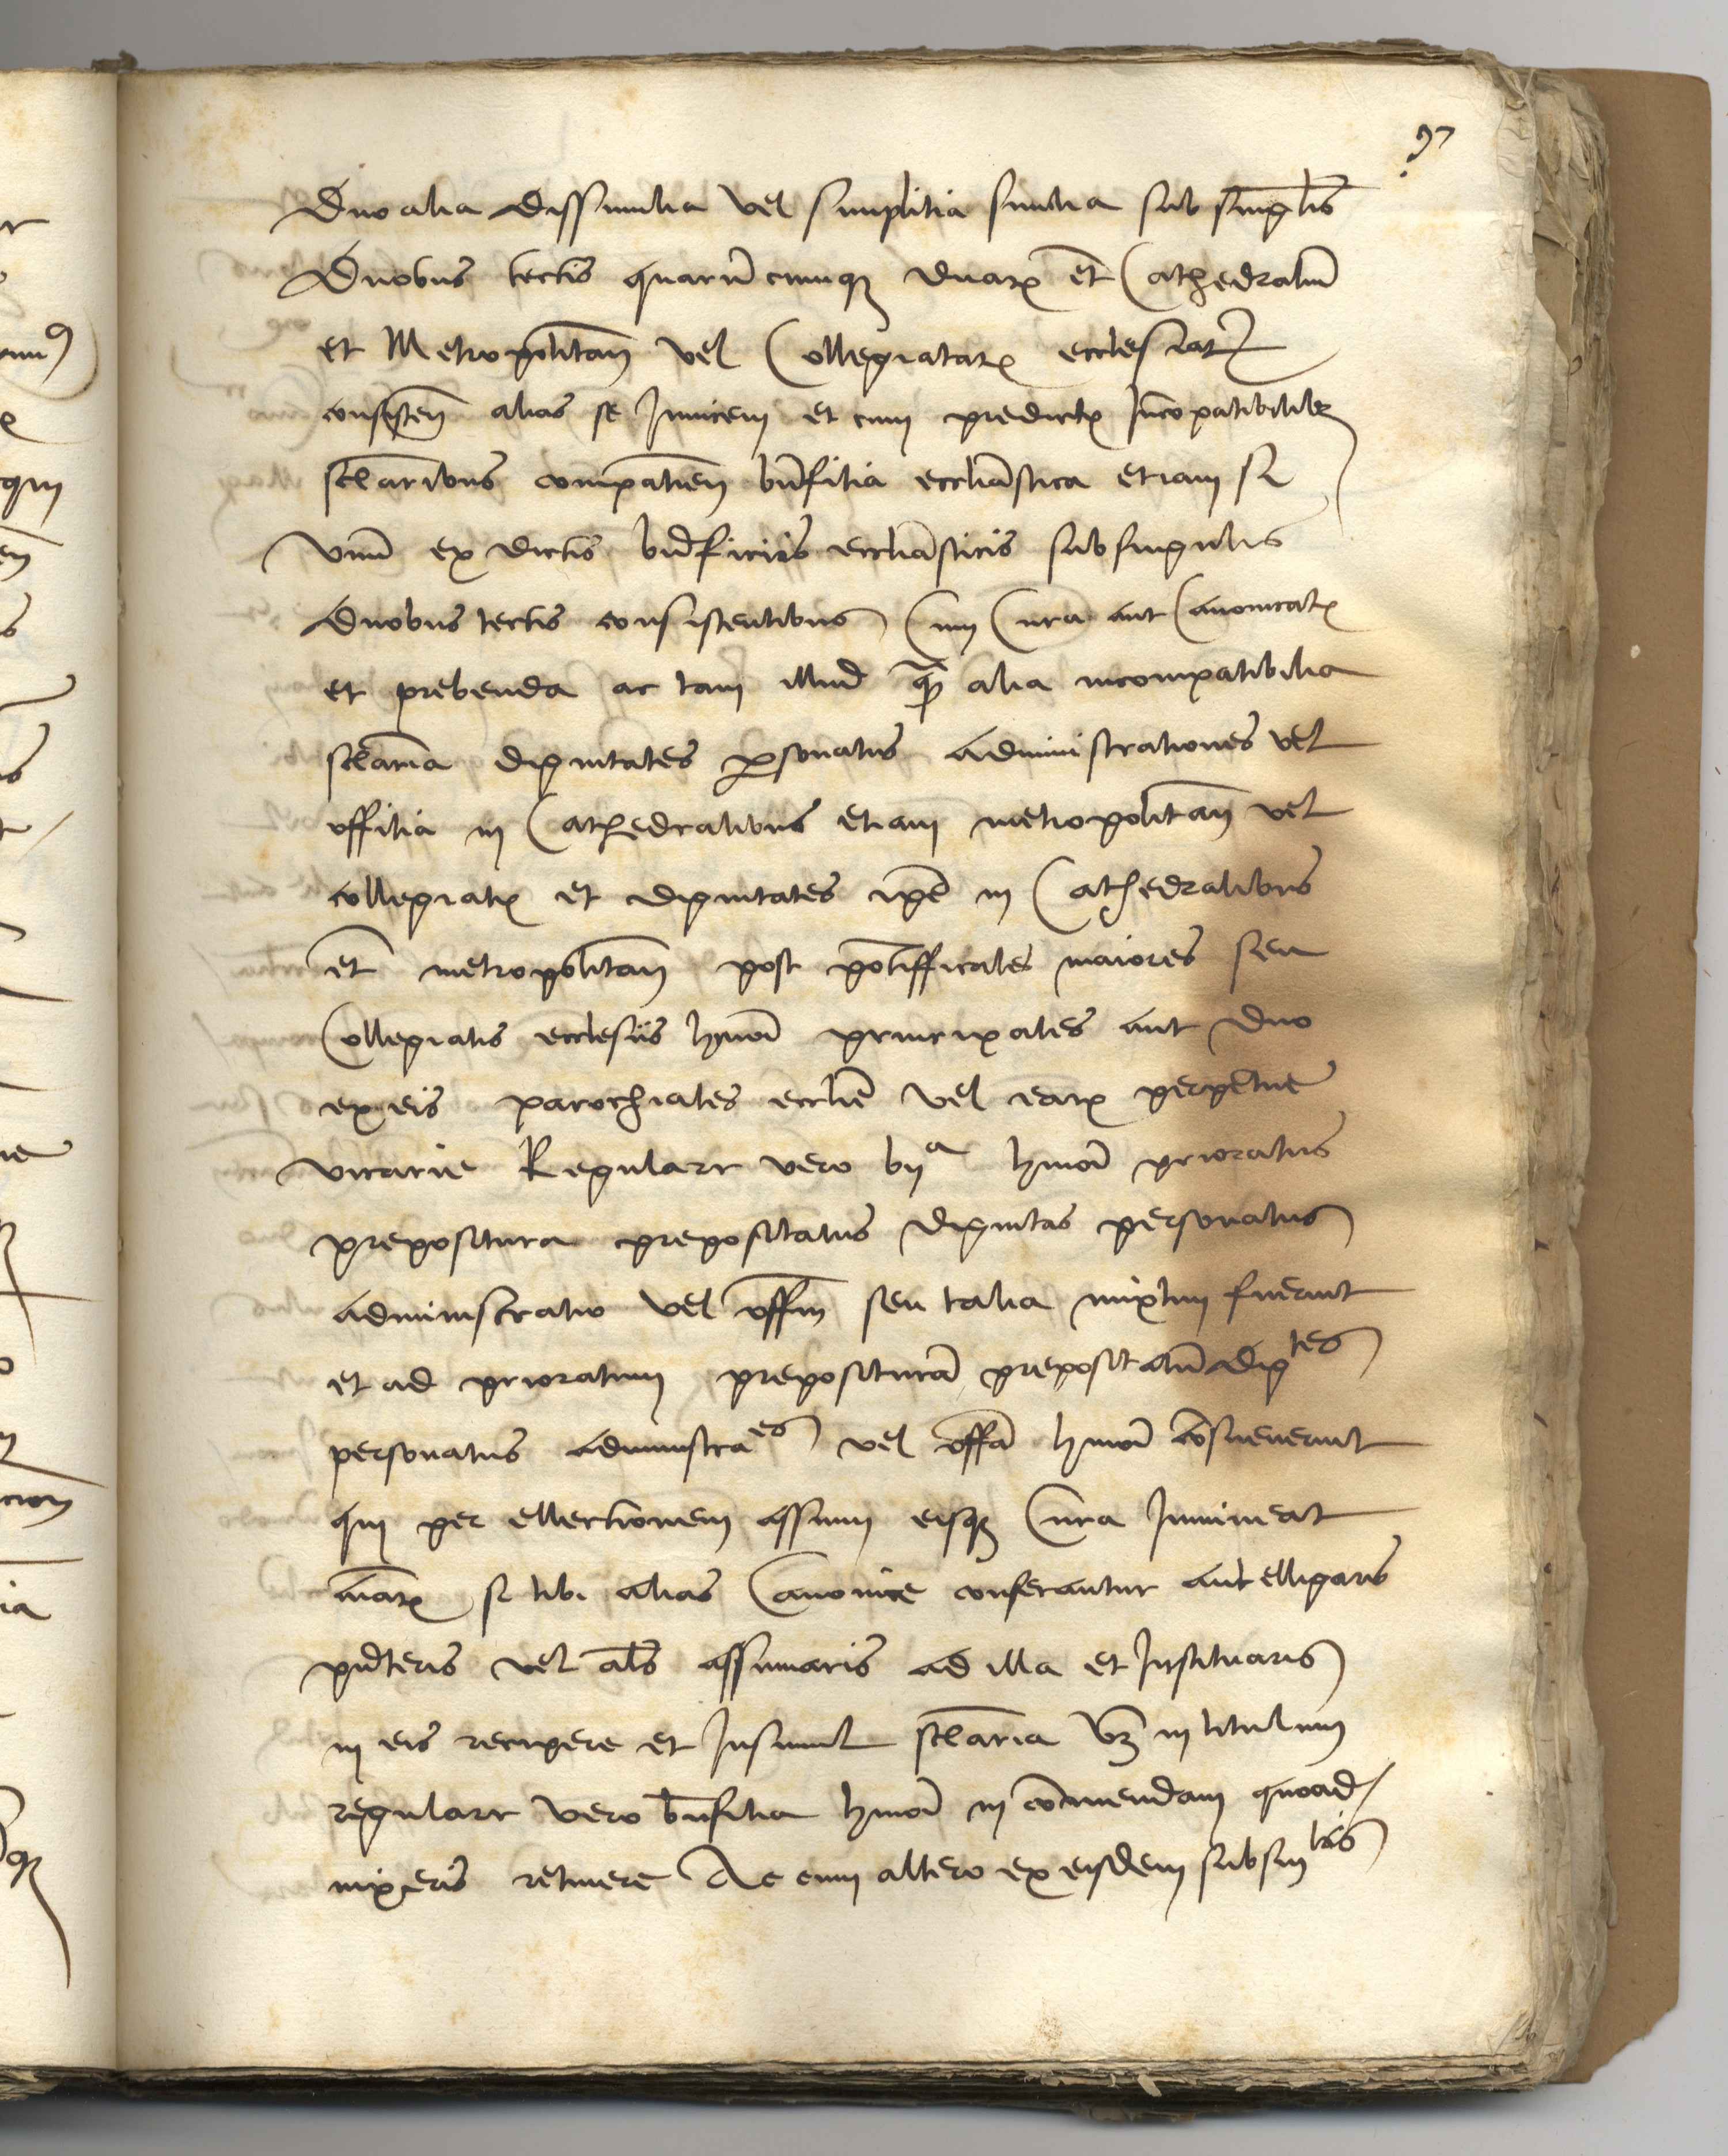 97
Duo alia dissimilia vel simplitia similia sub singulis
Duobus tectis quarūcumq₃ duarꝝ et̄ Cathedraliū
et Metropolitan̄ vel Collegiatarꝝ ecclesiarꝝ
consisten̄ alias se Invicem et cum predictꝝ Incōpatibilibꝫ
sc̄laribus compatien̄ bn̄fitia eccliāstica etiam si
vnū ex dictis bn̄ficiis eccliāsticis sub singulis
duobus tectis consistentibus Cum Cura aut Canonicatꝝ
et prebenda ac tam illud qꝫ alia incompatibilia
sc̄laria dignitates ꝑsonatus administrationes vel
offitia in Cathedralibus etiam metropolitan̄ vel
collegiatꝝ et dignitates ip̄e in Cathedralibus
et̄ metropolitan̄ post pōtifficales maiores seu
Collegiatis ecclesiis hmōi principales aut duo
ex eis parochiales ecclīe vel earꝝ perpetue
vicarie Regulari vero bn̄ᵃ hmōi prioratus
prepositura prepositatus dignitas personatus
administratio vel offm̄ seu talia mixtim fuerint
et ad prioratum prepositurā prepositatū digᵗᵉˢ
personatus administraᵉˢ vel offā hmōi cōsueuerint
qui per ellectionem assumi eisq₃ Cura Immineat
aīarꝝ si tibi alias Canonice conferantur aut elligaris
pn̄teris vel als̄ assumaris ad illa et Instituaris
in eis recipere et Insimul sc̄laria vꝫ in titulum
regulari vero bn̄fitia hmōi in cōmendam quoad
vixeris retinere Ac cum altero ex eisdem sub sinˡⁱˢ